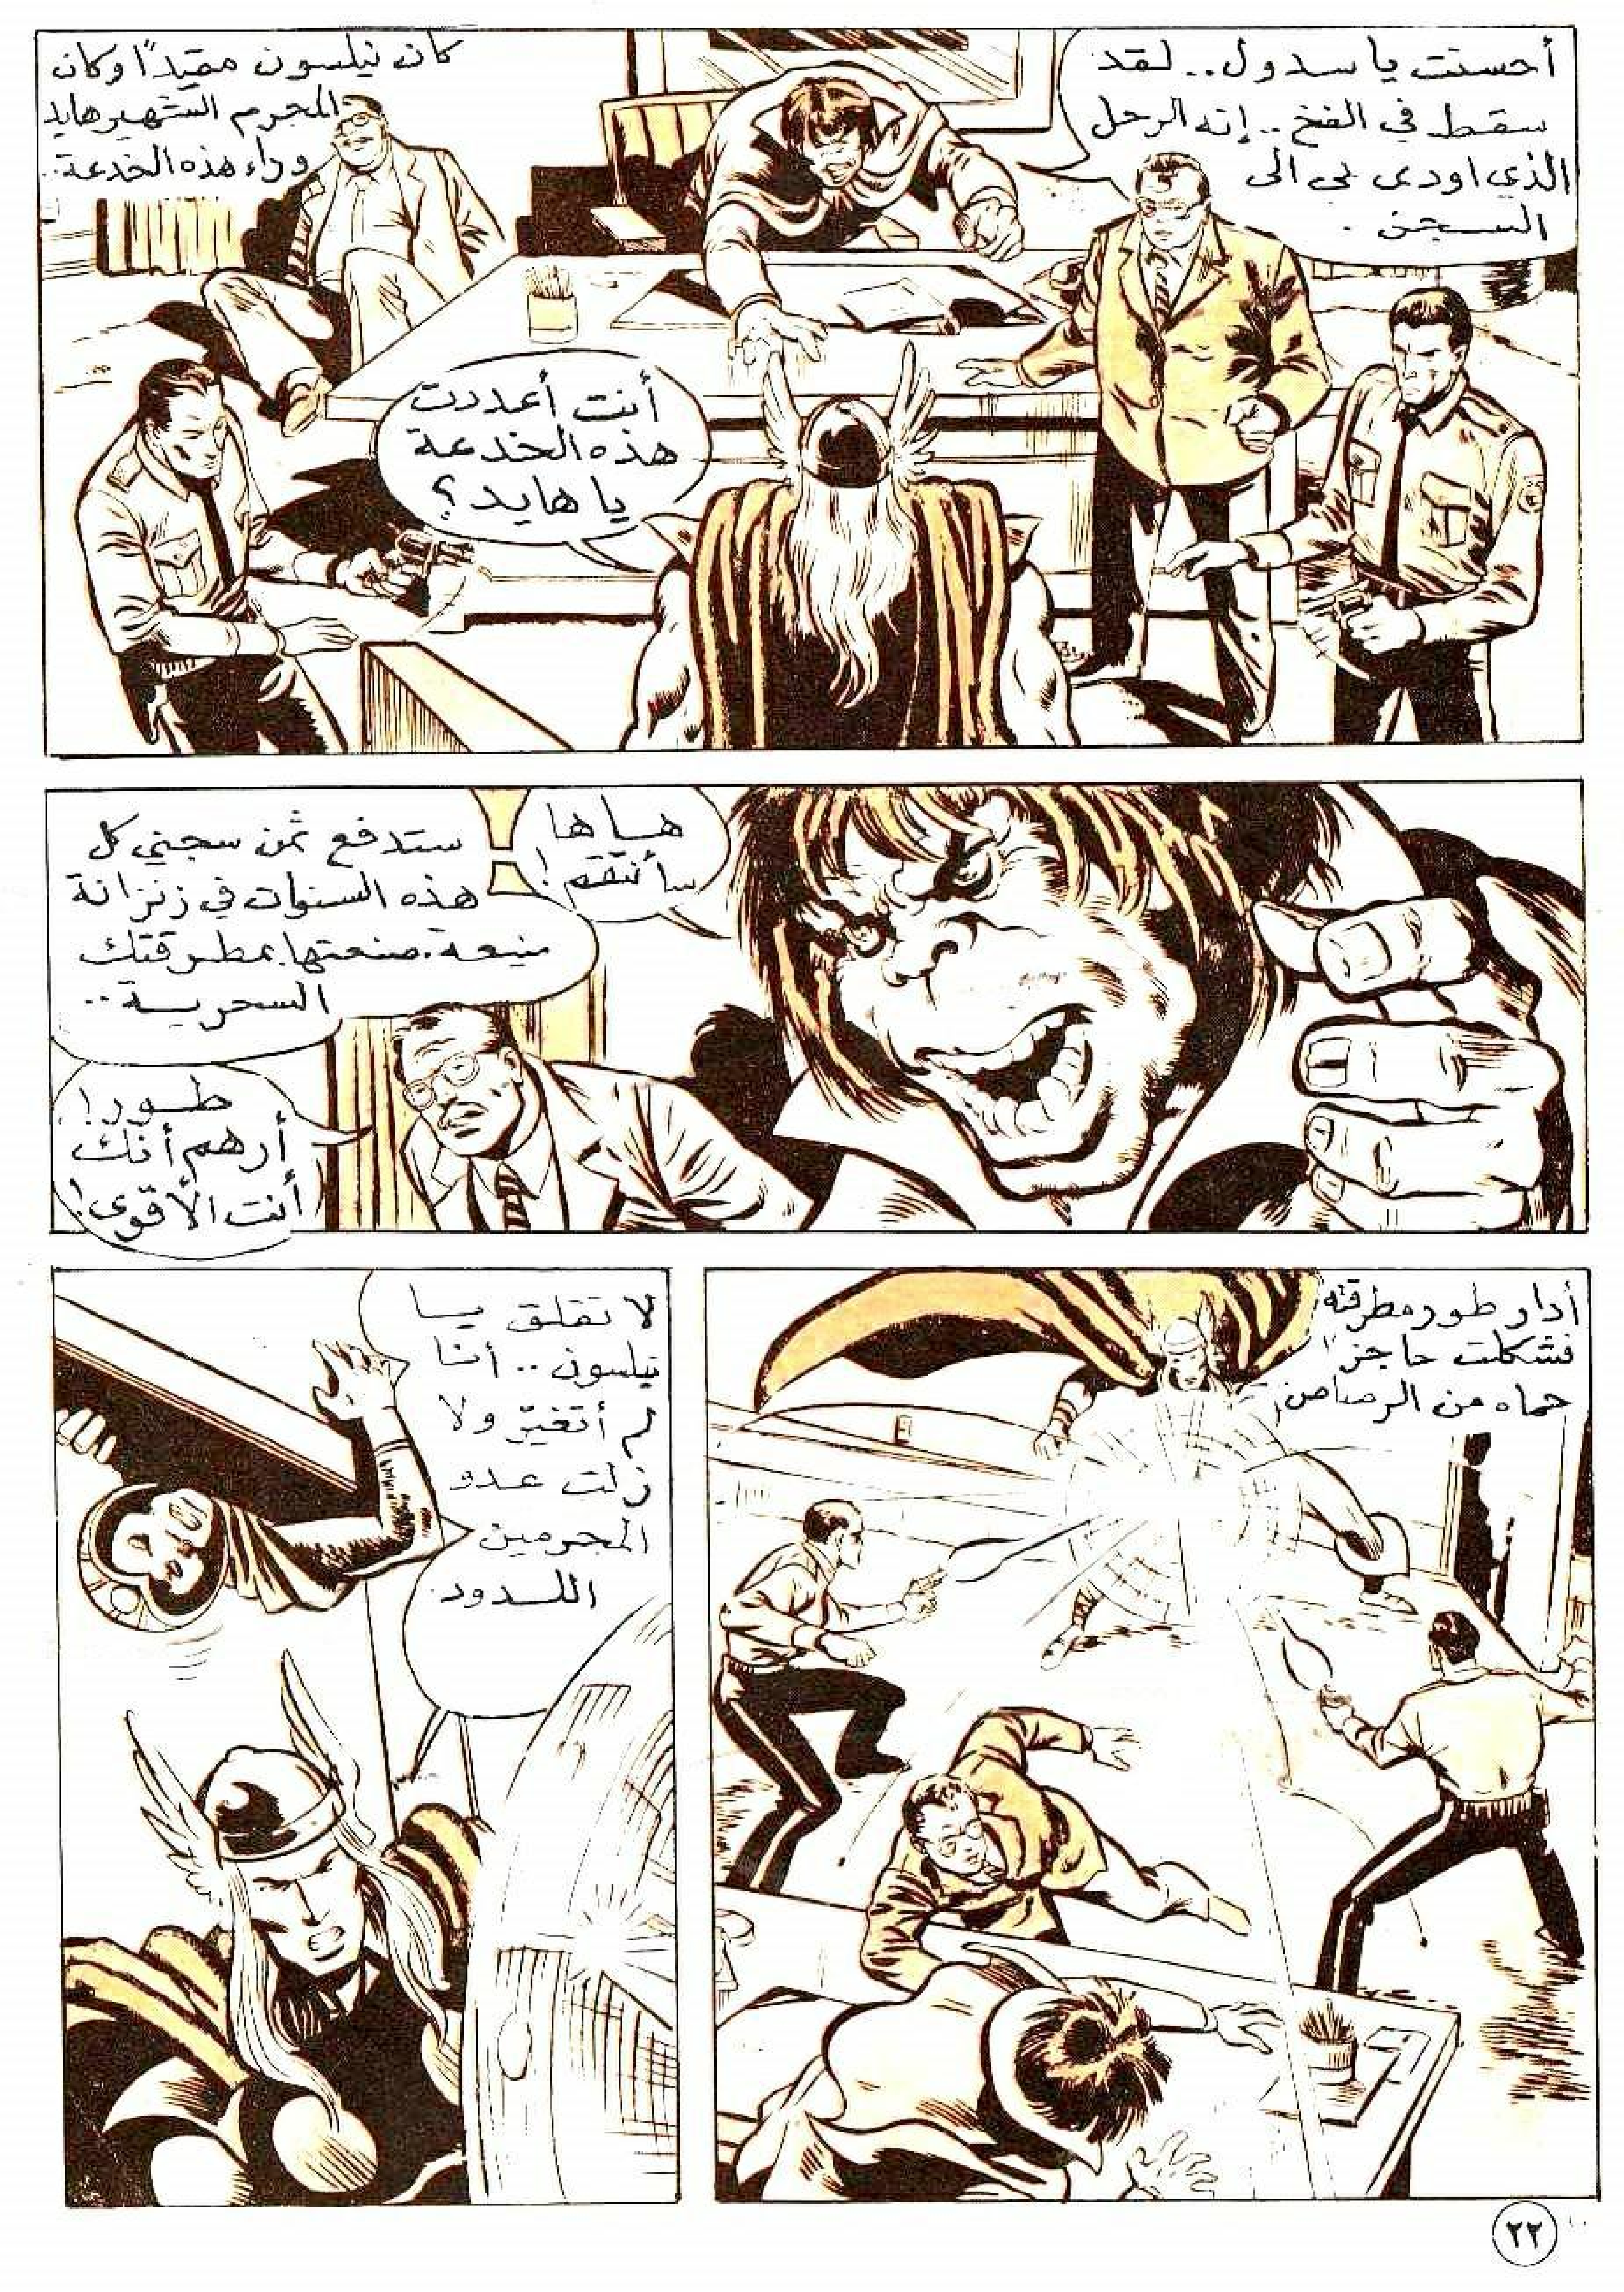 أحسنت يا سدول.. لقد
سقط في الفخ.. إنه الرجل
الذي اودى بي الى
السجن.
كان نيلسون مقيدًا وكان
المجرم الشهير هايد
وراء هذه الخدعة..
أنت أعددت
هذه الخدعة
يا هايد؟
هاها
سأنتقم!
ستدفع ثمن سجني كل
هذه السنوات في زنزانة
منيعة. صنعتها بمطرقتك
السحرية..
طور!
أرهم أنك
أنت الأقوى!
أدار طور مطرقته
فشكلت حاجزًا
حماه من الرصاص
لا تقلق يا
نيلسون.. أنا
لم أتغيّر ولا
زلت عدو
المجرمين
اللدود.
٢٢